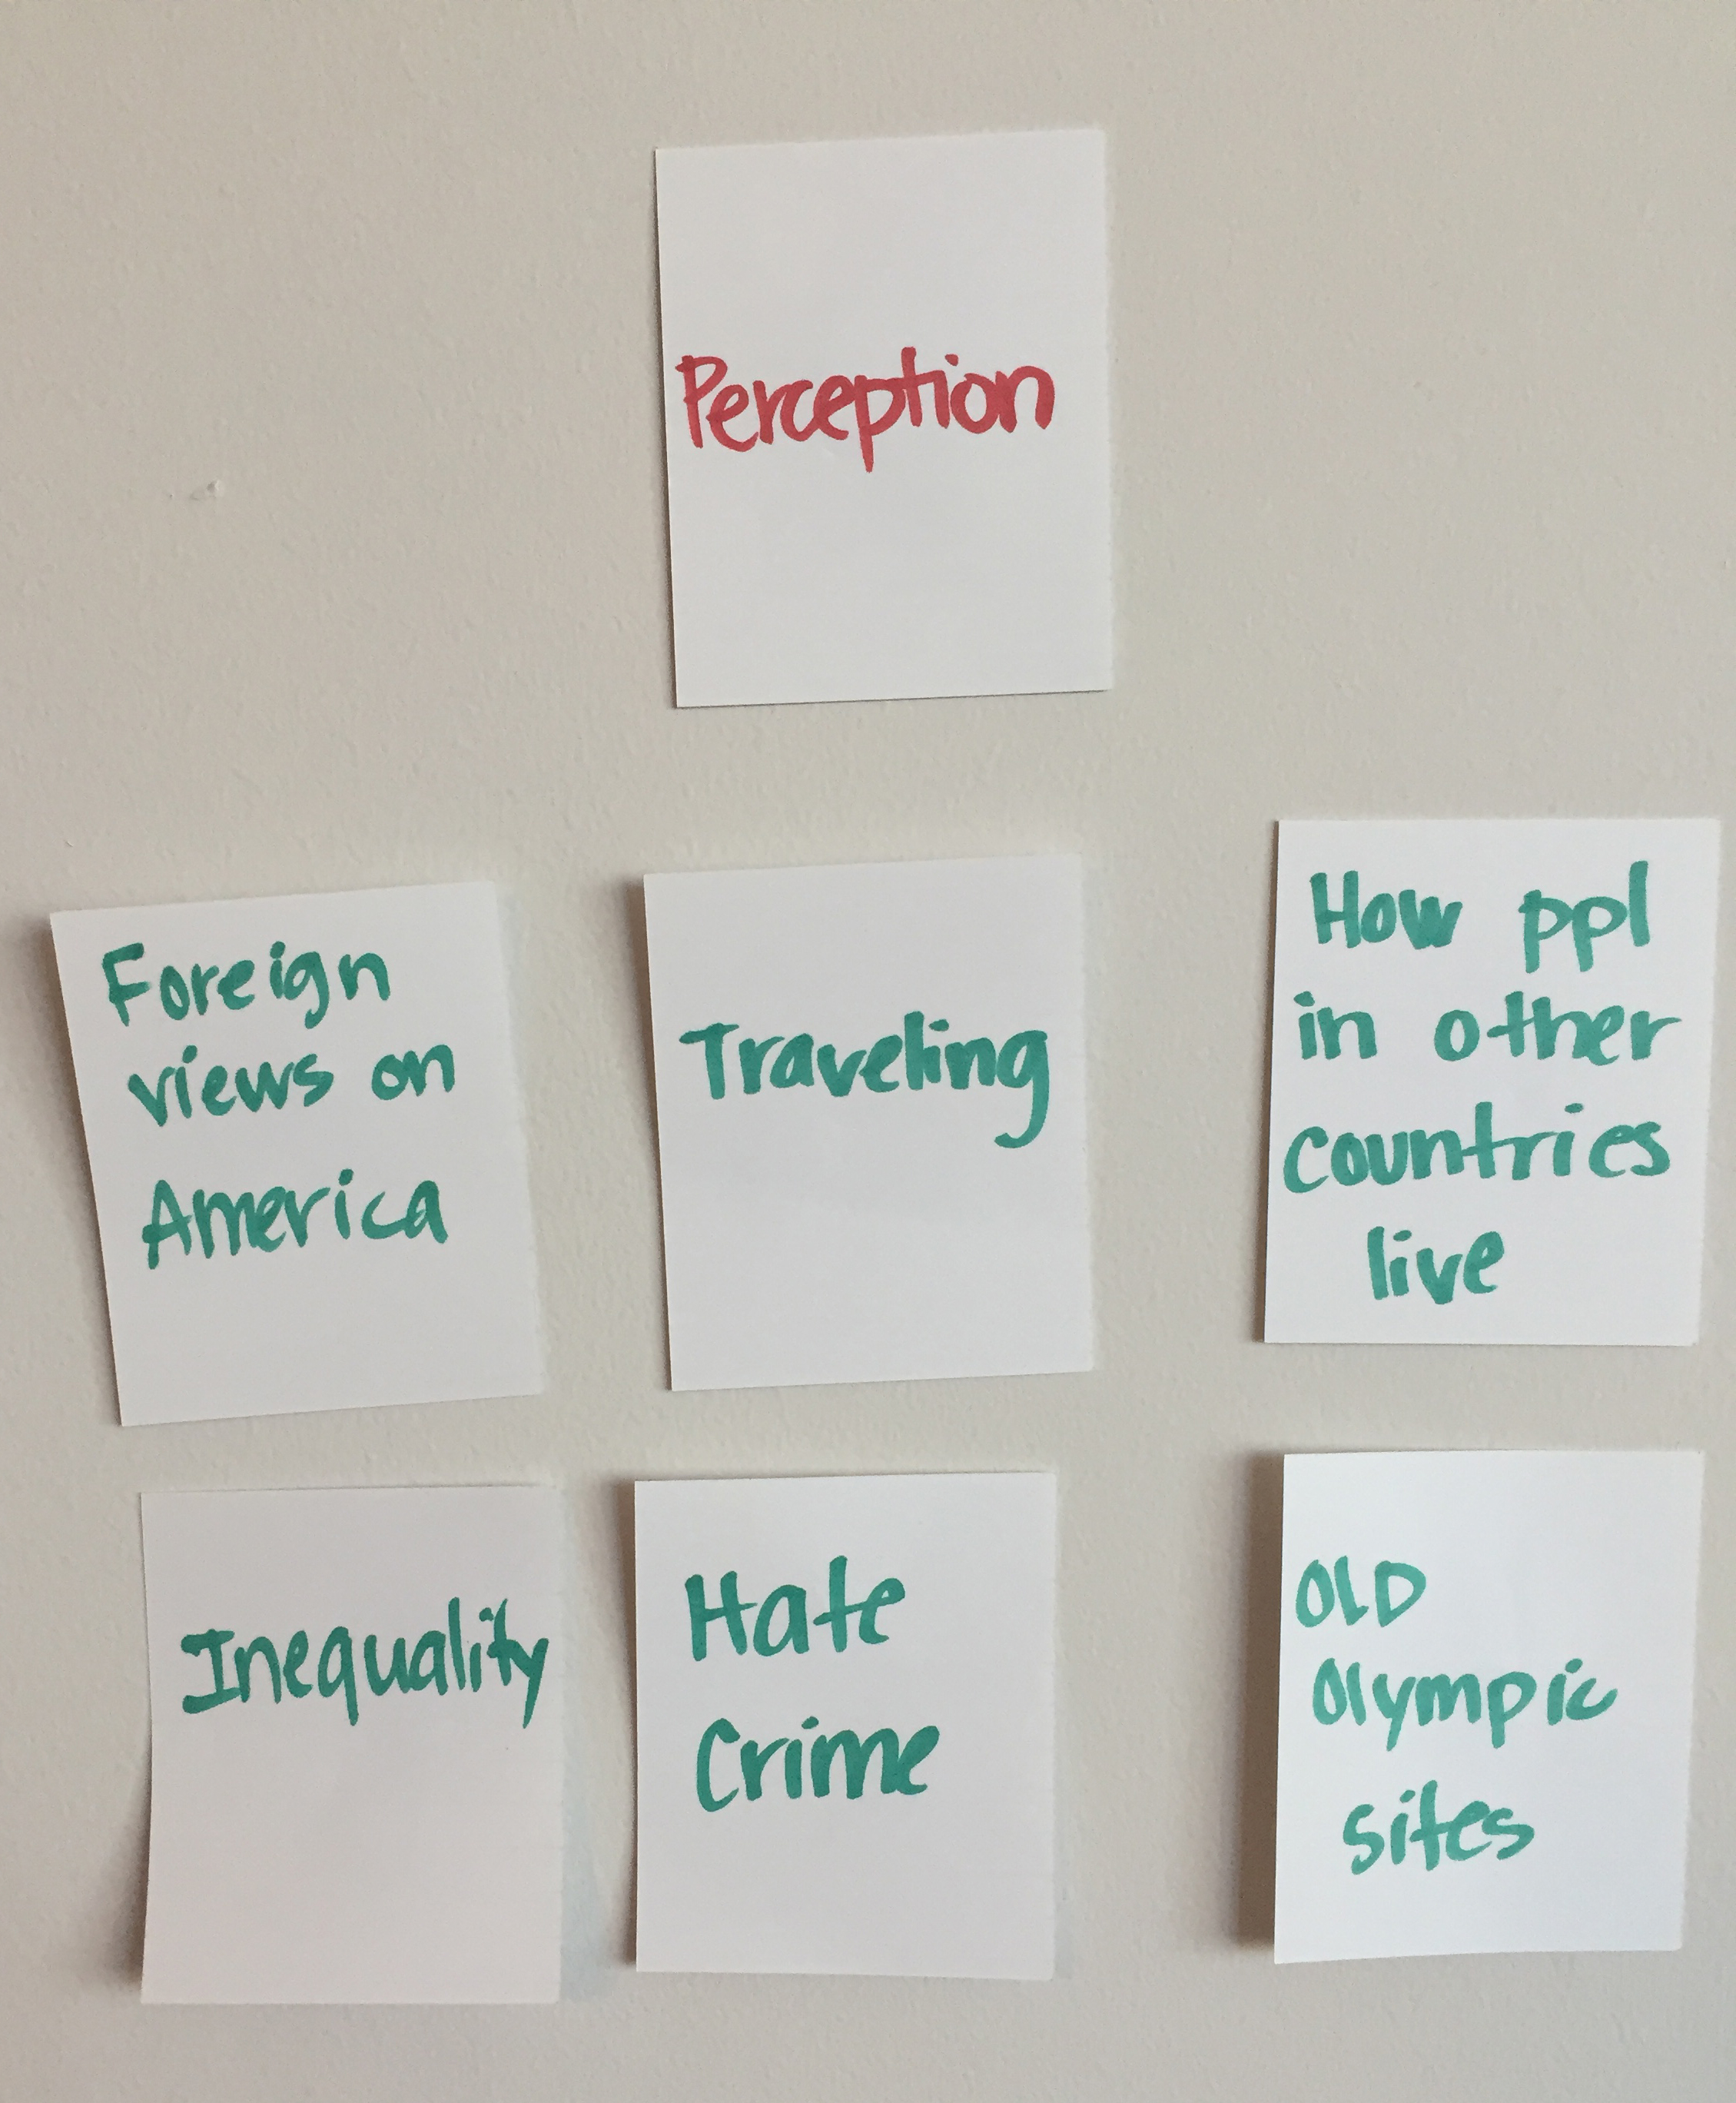 Perception
Foreign
views on
America
Traveling
How ppl
in other
countries
live
Inequality
Hate
Crime
OLD
Olympic
sites